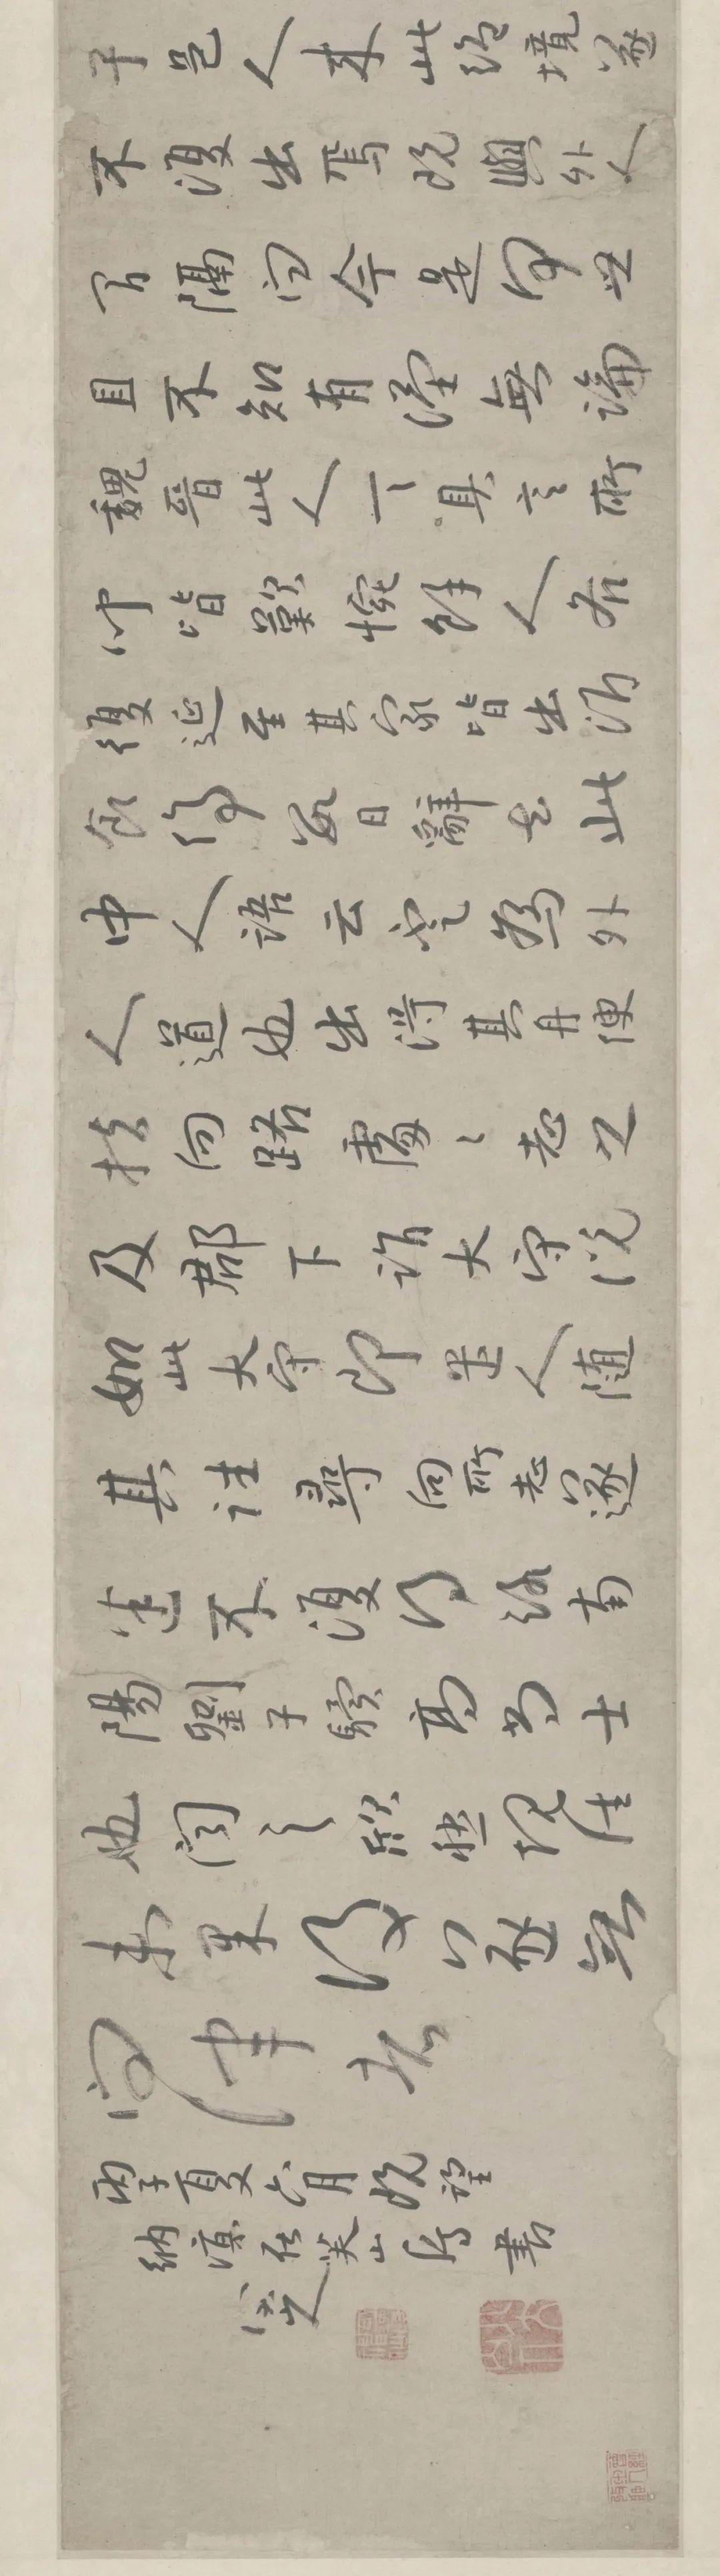 子邑人來此絕境遂
不復出焉既與外人
間隔問今是何世
且不知有漢無論
魏晉此人一一具言所
聞皆歎惋餘人各
復延至其家皆出酒
食停數日辭去此
中人語云不足為外
人道也出得其舟便
扶向路處々志之
及郡下詣大守說
如此大守即遣人隨
其往尋向所志遂
迷不復得路南
陽劉子驥高尚士
也聞之欣然規往
未果後遂無
問津者
丙子夏六月既望
納涼在芙山房書
八大山人